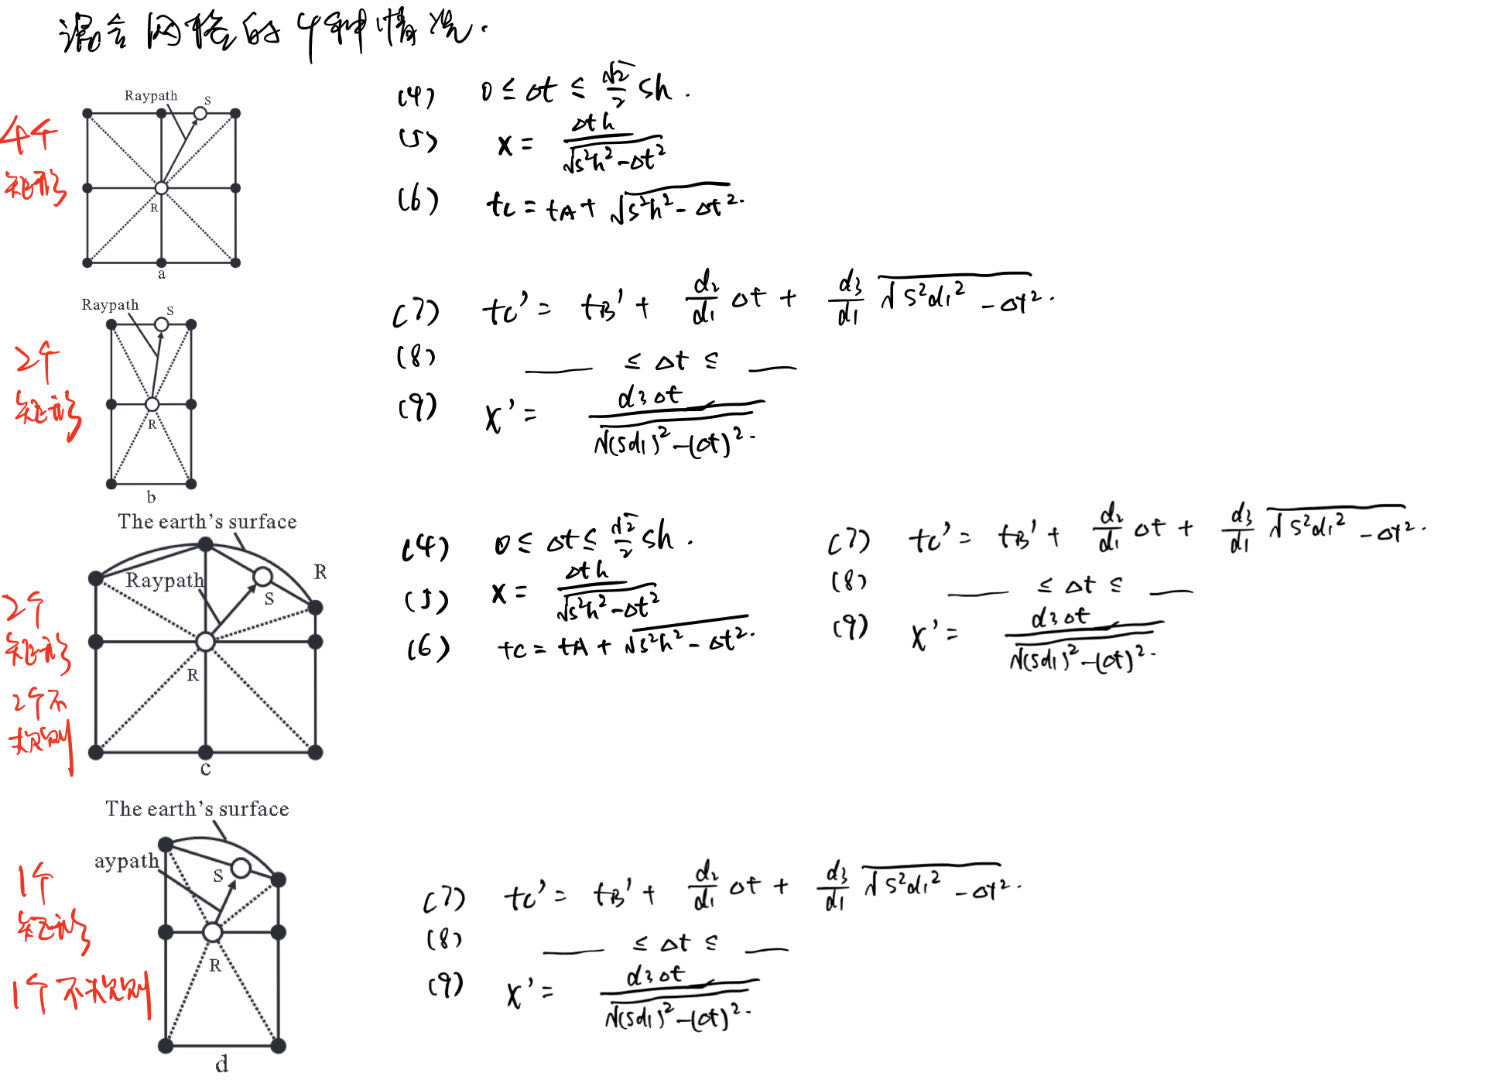 混合网格的4种情况.
Raypath
S
R
a
4个
矩形
(4) 0 ≤ Δt ≤ √2/2 sh.
(5) x = Δth/√(s²h²-Δt²)
(6) tc = tA + √(s²h²-Δt²).
Raypath
S
R
b
2个
矩形
(7) tc' = tB' + d₂/d₁ Δt + d₃/d₁ √(s²d₁²-Δt²).
(8) ___ ≤ Δt ≤ ___
(9) x' = d₃Δt/√((sd₁)²-(Δt)²).
The earth's surface
Raypath
R
S
R
c
2个
矩形
2个不
规则
(4) 0 ≤ Δt ≤ √2/2 sh.
(5) x = Δth/√(s²h²-Δt²)
(6) tc = tA + √(s²h²-Δt²).
(7) tc' = tB' + d₂/d₁ Δt + d₃/d₁ √(s²d₁²-Δt²).
(8) ___ ≤ Δt ≤ ___
(9) x' = d₃Δt/√((sd₁)²-(Δt)²).
The earth's surface
aypath
S
R
d
1个
矩形
1个不规则
(7) tc' = tB' + d₂/d₁ Δt + d₃/d₁ √(s²d₁²-Δt²).
(8) ___ ≤ Δt ≤ ___
(9) x' = d₃Δt/√((sd₁)²-(Δt)²).